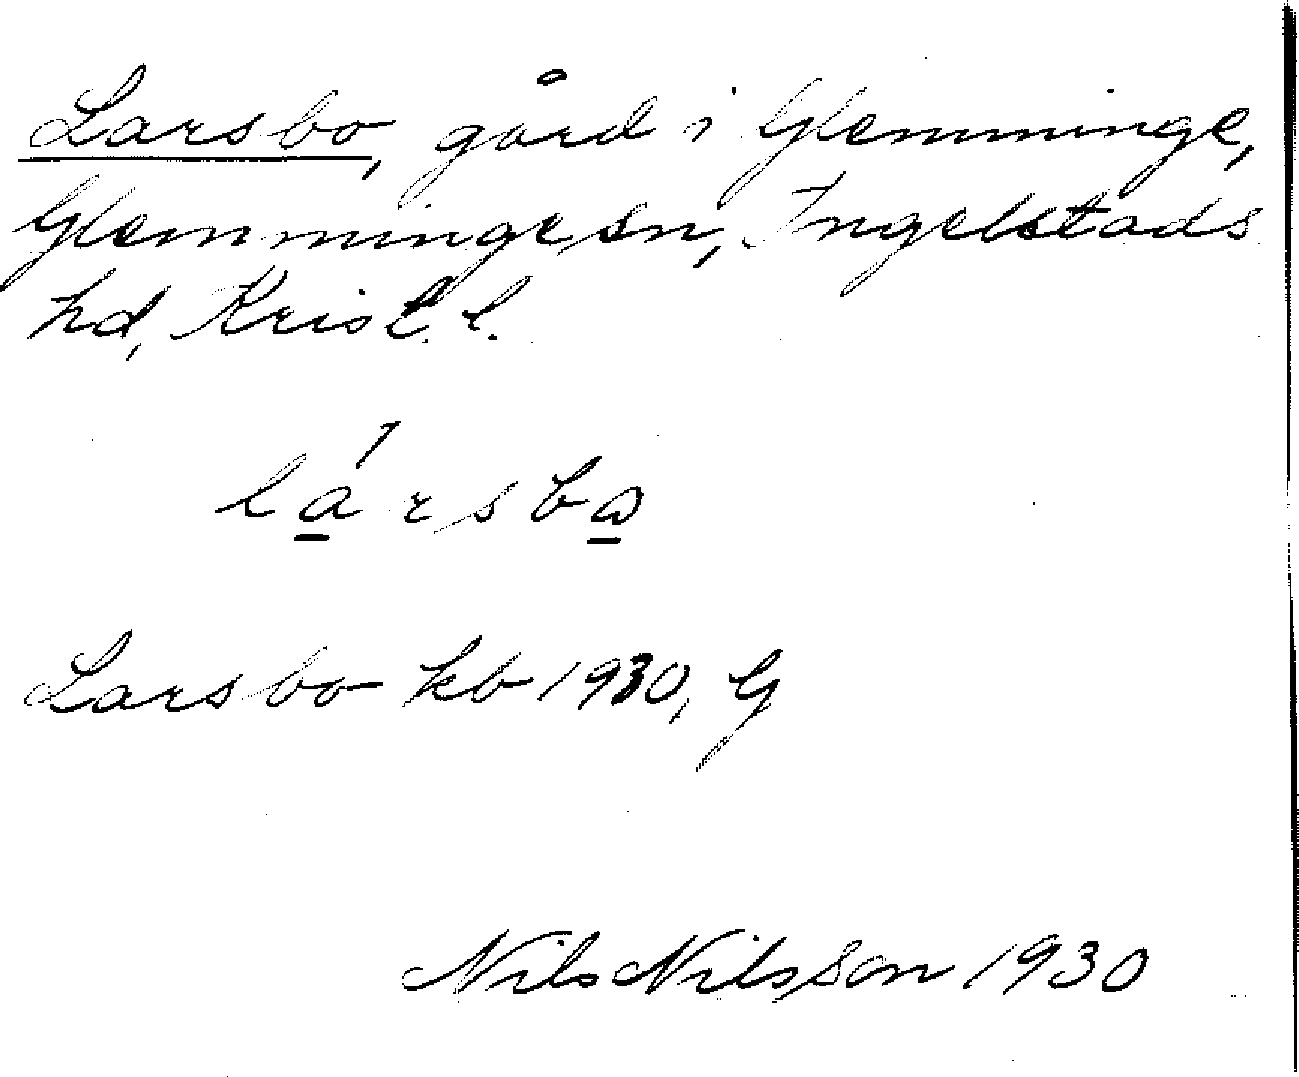 Larsbo, gård i Glemminge,
Glemminge sn, Ingelstads
hd, Krist. l.
lársba
Larsbo kb 1930, G
Nils Nilsson 1930